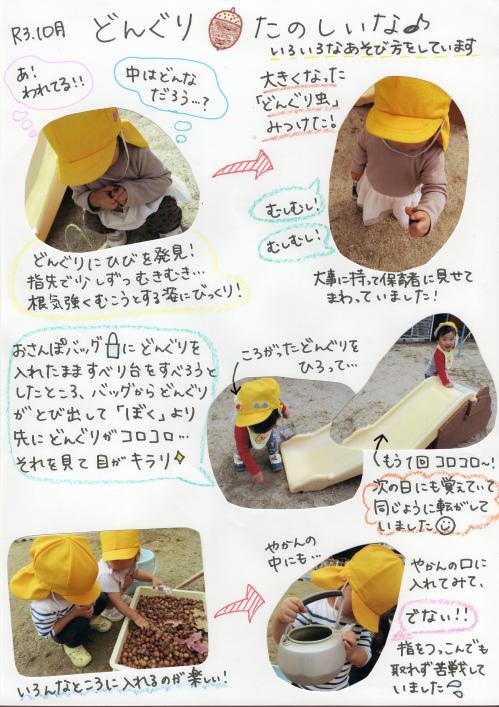 R3.10月
どんぐり たのしいな♪
いろいろなあそび方をしています
あ!
われてる!!
中はどんな
だろう…?
大きくなった
「どんぐり虫」
みつけた!
むしむし!
むしむし!
どんぐりにひびを発見!
指先で少しずつむきむき…
根気強くむこうとする姿にびっくり!
大事に持って保育者に見せて
まわっていました!
おさんぽバッグにどんぐりを
入れたまますべり台をすべろうと
したところ、バッグからどんぐり
がとび出して「ぼく」より
先にどんぐりがコロコロ…
それを見て目がキラリ
ころがったどんぐりを
ひろって…
もう1回コロコロ~!
次の日にも覚えていて
同じように転がして
いました
いろんなところに入れるのが楽しい!
やかんの
中にも…
やかんの口に
入れてみて、
でない!!
指をつっこんでも
取れず苦戦して
いました